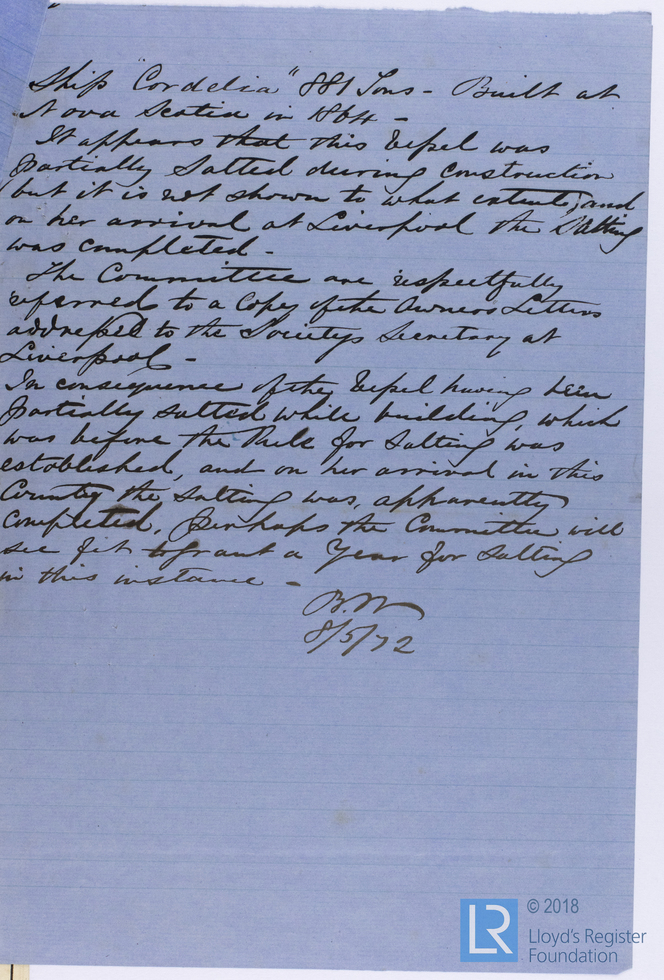 Ship "Cordelia" 881 Tons - Built at
Nova Scotia in 1864 -
It appears that this Vessel was
partially Salted during construction
but it is not shown to what extent, and
on her arrival at Liverpool the Salting
was completed -
The Committee are respectfully
referred to a Copy of the Owners Letters
addressed to the Society's Secretary at
Liverpool -
In consequence of the Vessel having been
partially salted while building, which
was before the Rule for Salting was
established, and on her arrival in this
Country the salting was, apparently
completed, perhaps the Committee will
see fit to grant a Year for Salting
in this instance -
B.W
8/5/72
LR © 2018
Lloyd's Register
Foundation